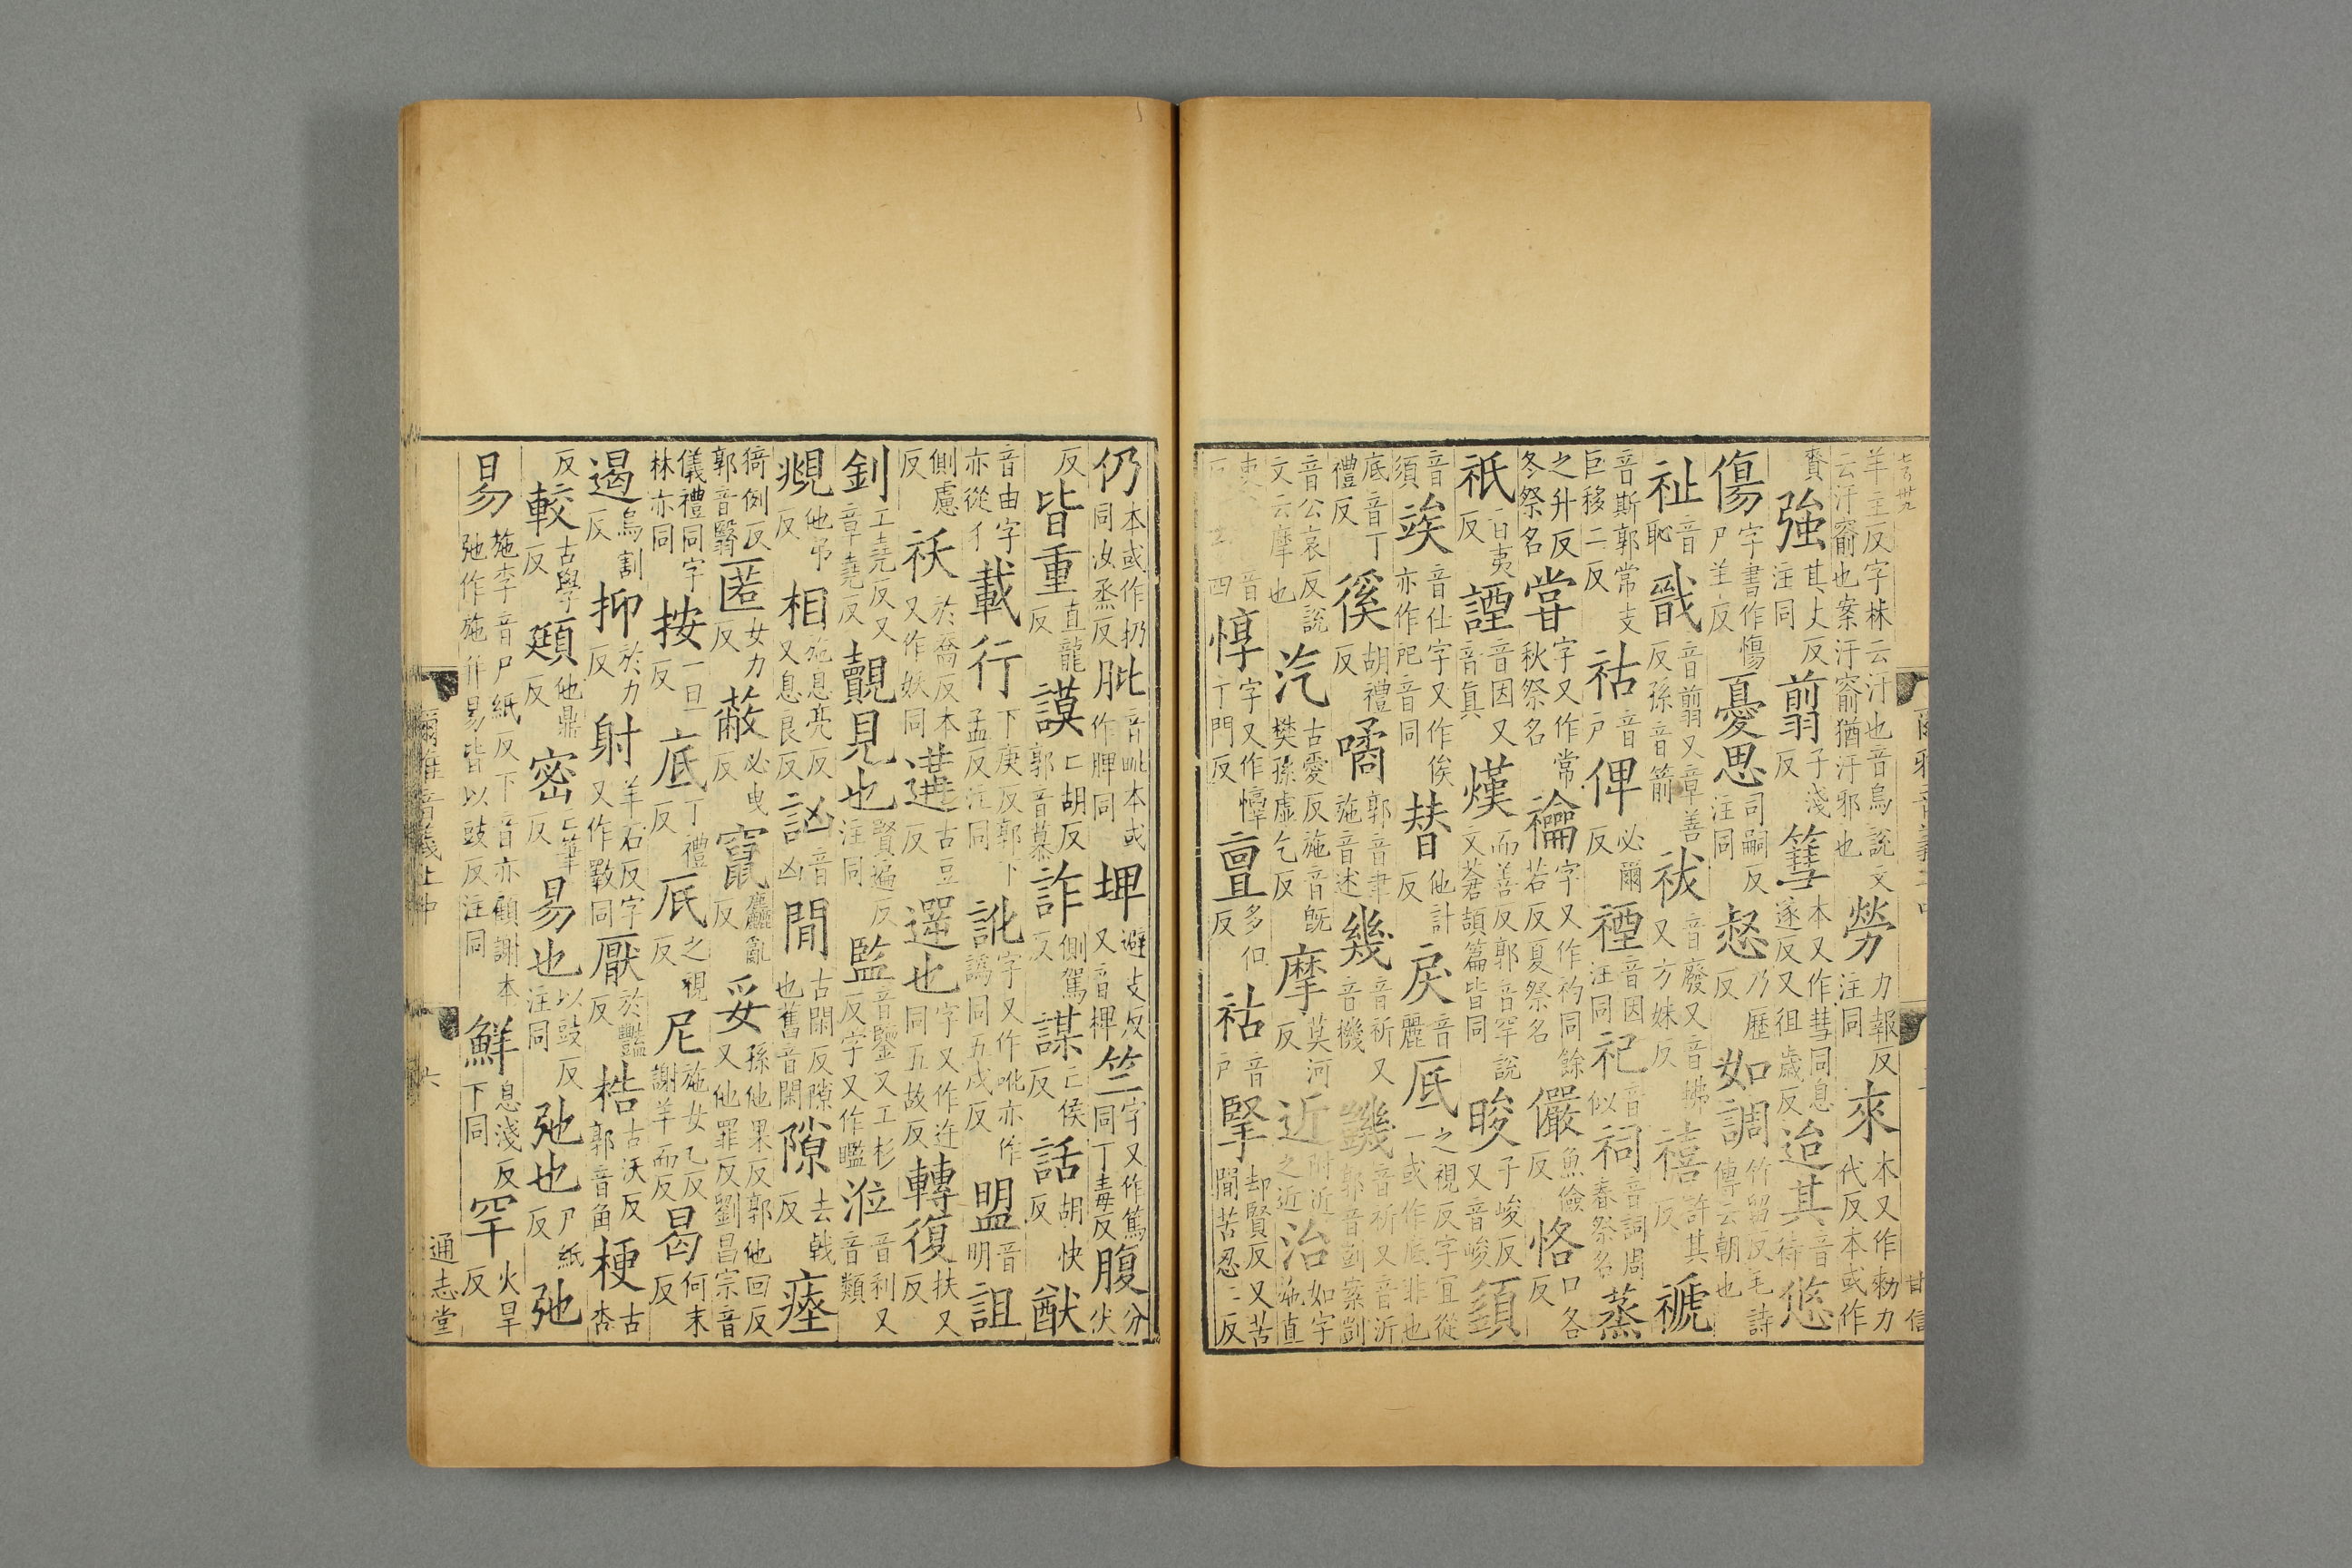 羊主反字林云汙也音烏說文云汙窬也案汙窬猶汙邪也 勞力報反注同 來本又作勑力代反本或作
賚 強其丈反注同 翦子淺反 篲本又作彗同息遂反又徂歲反 迨其音待 悠
傷字書作愓尸羊反 憂思司嗣反注同 惄乃歷反 如調竹留反毛詩傳云朝也
祉音恥 戩音翦又章善反孫音箭 祓音廢又音拂又方妹反 禧許其反 禠
音斯郭常支巨移二反 祜音戶 俾必爾反 禋音因注同 祀音似 祠音詞周春祭名 蒸
之升反冬祭名 甞字又作常秋祭名 禴字又作礿同餘若反夏祭名 儼魚儉反 恪口各反
祇日夷反 諲音因又音真 熯而善反郭音罕說文蒼頡篇皆同 晙子峻反又音峻 䇓
音須 竢音仕字又作俟亦作䇃音同 替他計反 戾音麗 厎之視反字宜從一或作底非也
底音丁禮反 徯胡禮反 噊郭音聿施音述 幾音祈又音機 譏音祈又音沂郭音剴案剴
音公哀反說文云摩也 汽古愛反施音旣樊孫虛乞反 摩莫河反 近附近之近 治如字施直
吏反 惇字又作憞丁門反 亶多但反 祜音戶 掔却賢反又苦閒苦忍二反
甘信
仍本或作扔同汝烝反 肶音毗本或作膍同 埤避支反又音裨 竺字又作篤同丁毒反 腹分伏
反 皆重直龍反 謨亡胡反郭音慕 詐側駕反 謀亡侯反 話胡快反 猷
音由字亦從彳 載行下庚反郭下孟反注同 訛字又作吪亦作譌同五戈反 盟音明 詛
側慮反 祅於喬反本又作妖同 遘古豆反 遻也字又作迕同五故反 轉復扶又反
釗工堯反又章堯反 覿見也賢遍反注同 監音鑒又工杉反字又作瞷 涖音利又音類
覜他弔反 相施息亮反又息良反 訩音凶 閒古閑反隙也舊音閑 隙去戟反 瘞
猗例反郭音翳 匿女力反 蔽必曳反 竄麤亂反 妥孫他果反郭他回反又他罪反劉昌宗音
儀禮同字林亦同 按一旦反 底丁禮反 厎之視反 尼施女乙反謝羊而反 曷何末反
遏烏割反 抑於力反 射羊石反字又作斁同 厭於豔反 梏古沃反郭音角 梗古杏
反 較古學反 頲他鼎反 密亡筆反 易也以豉反注同 弛也尸紙反 弛
易施李音尸紙反下音亦顧謝本弛作施并易皆以豉反注同 鮮息淺反下同 罕火旱反
爾雅音義上中
六
通志堂